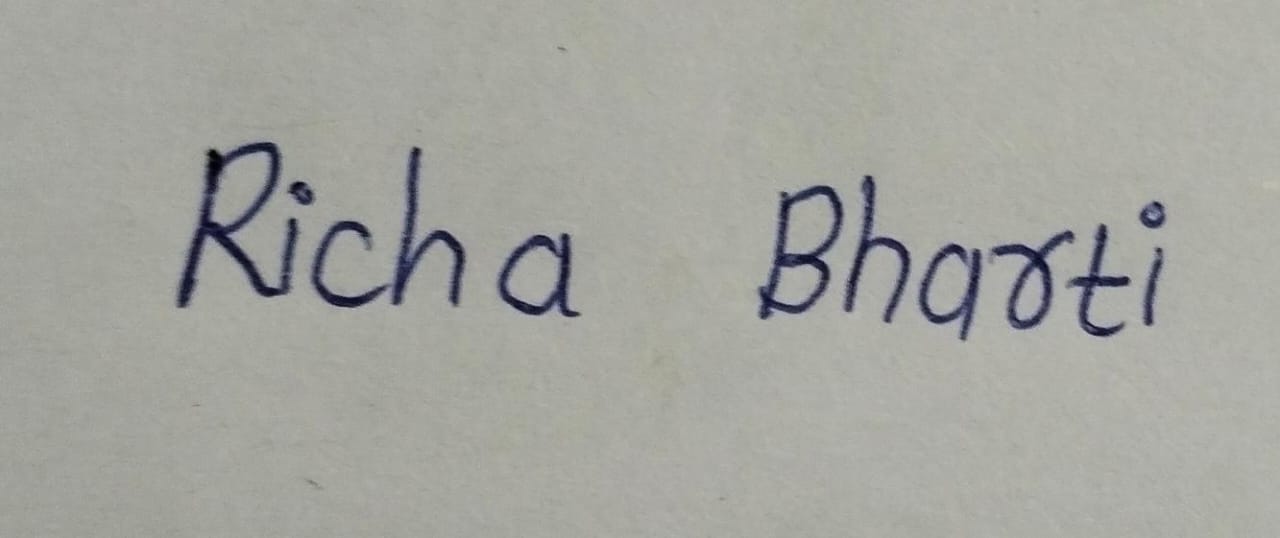 Richa Bharti